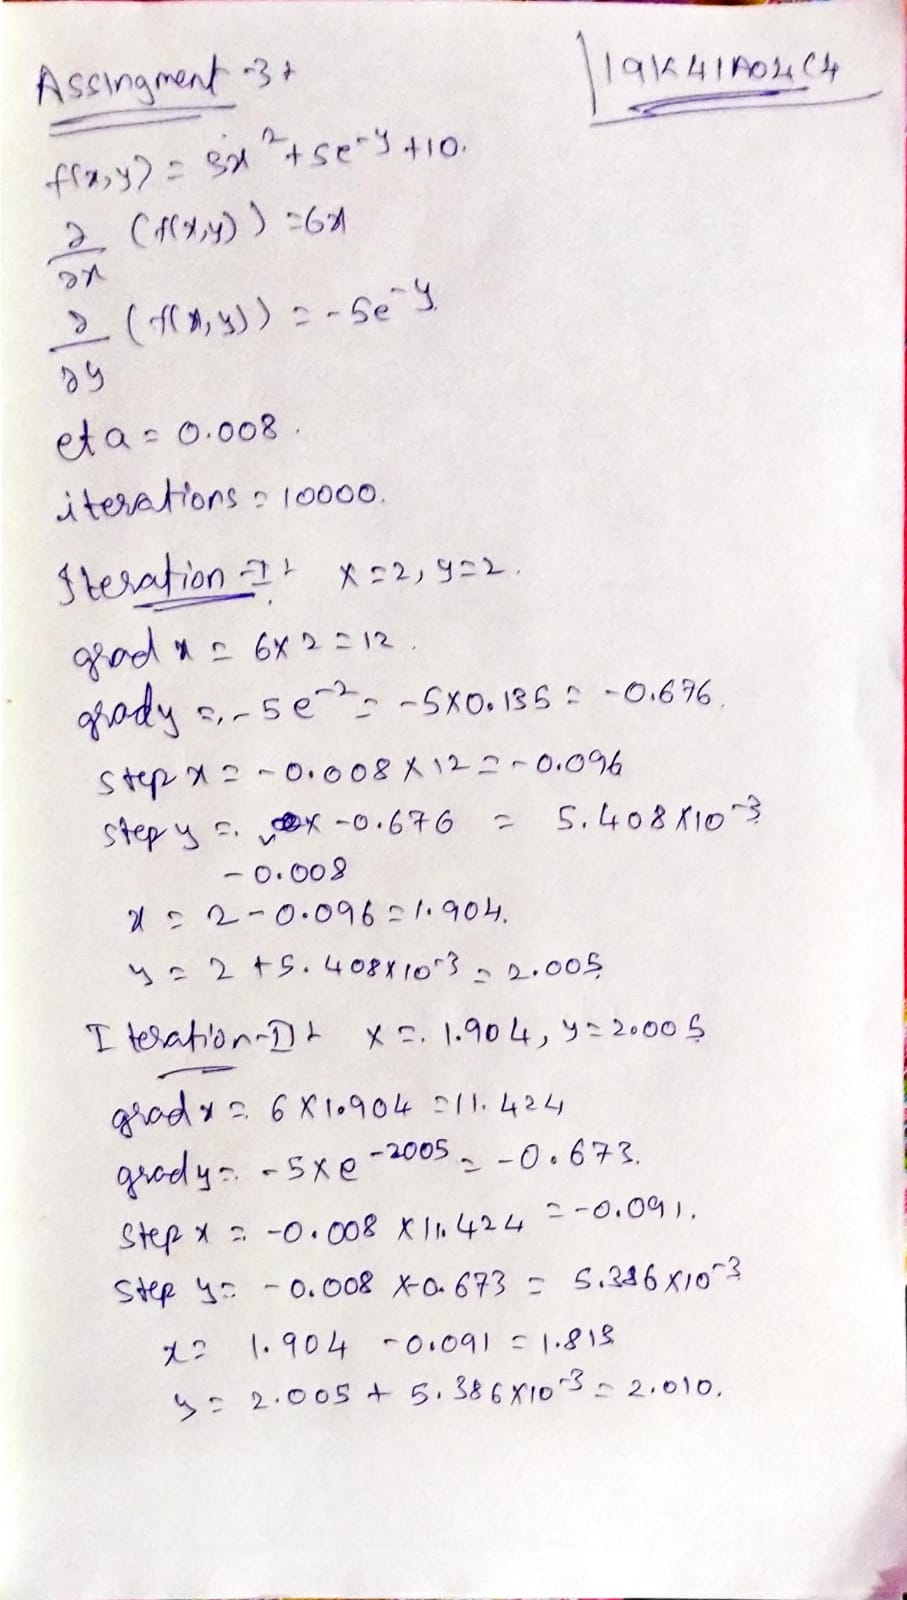 Assingment-3:
19K41A04C4
f(x,y) = 3x² + 5e^-y +10.
∂/∂x (f(x,y)) = 6x
∂/∂y (f(x,y)) = -5e^-y.
eta = 0.008.
iterations = 10000.
Iteration-I: x=2, y=2.
grad x = 6x2 = 12.
grady = -5e^-2 = -5x0.135 = -0.676.
step x = -0.008 x 12 = -0.096
step y = x -0.676 = 5.408x10^-3
-0.008
x = 2-0.096 = 1.904.
y = 2 +5.408x10^-3 = 2.005
Iteration-II: x = 1.904, y=2.005
grad x = 6x1.904 = 11.424
grady = -5xe^-2005 = -0.673.
step x = -0.008 x 11.424 = -0.091.
step y = -0.008 x-0.673 = 5.386x10^-3
x = 1.904 -0.091 = 1.813
y = 2.005 + 5.386x10^-3 = 2.010.